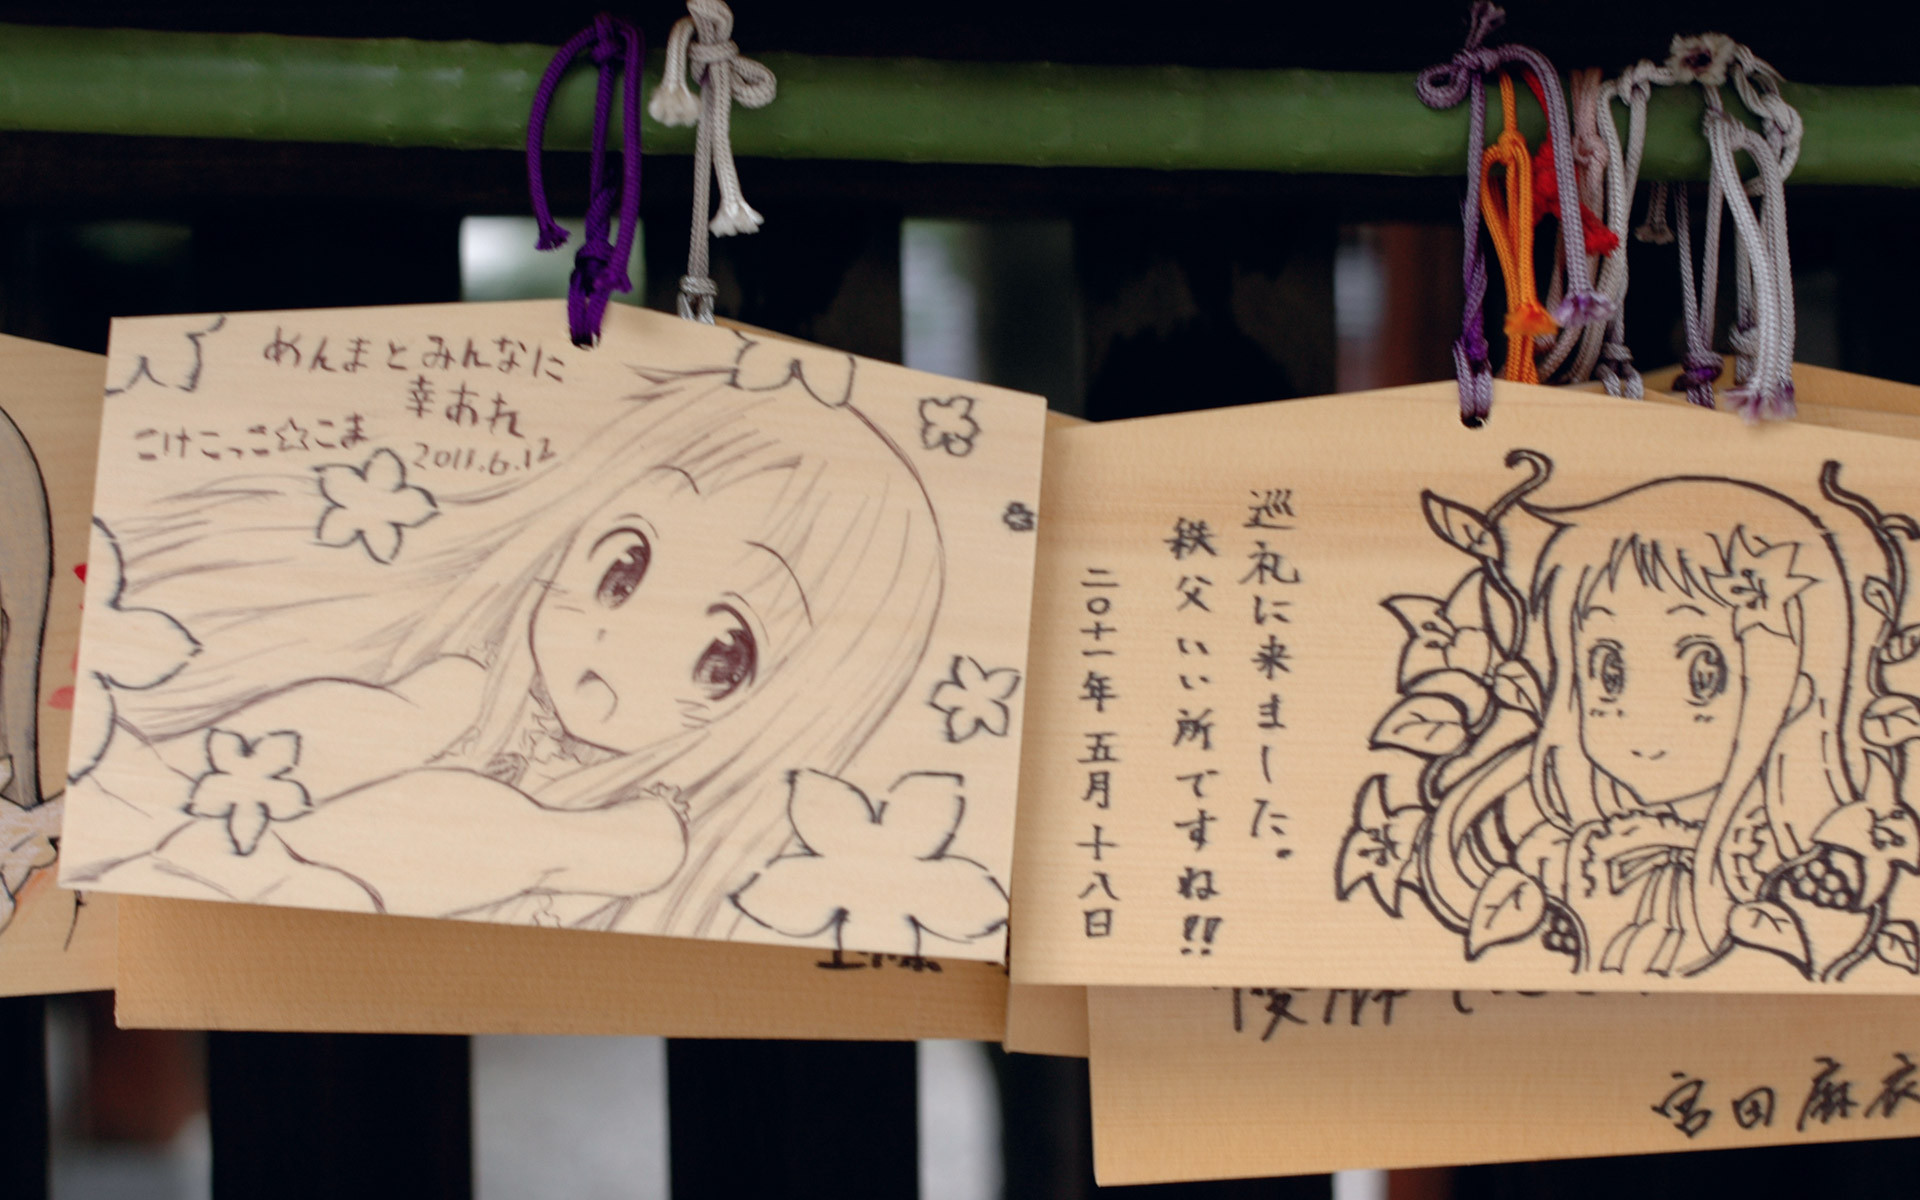 めんまとみんなに
幸あれ
こけこっこ☆こま
2011.6.12
巡礼に来ました。
秩父いい所ですね!!
二〇十一年五月十八日
宮田麻衣